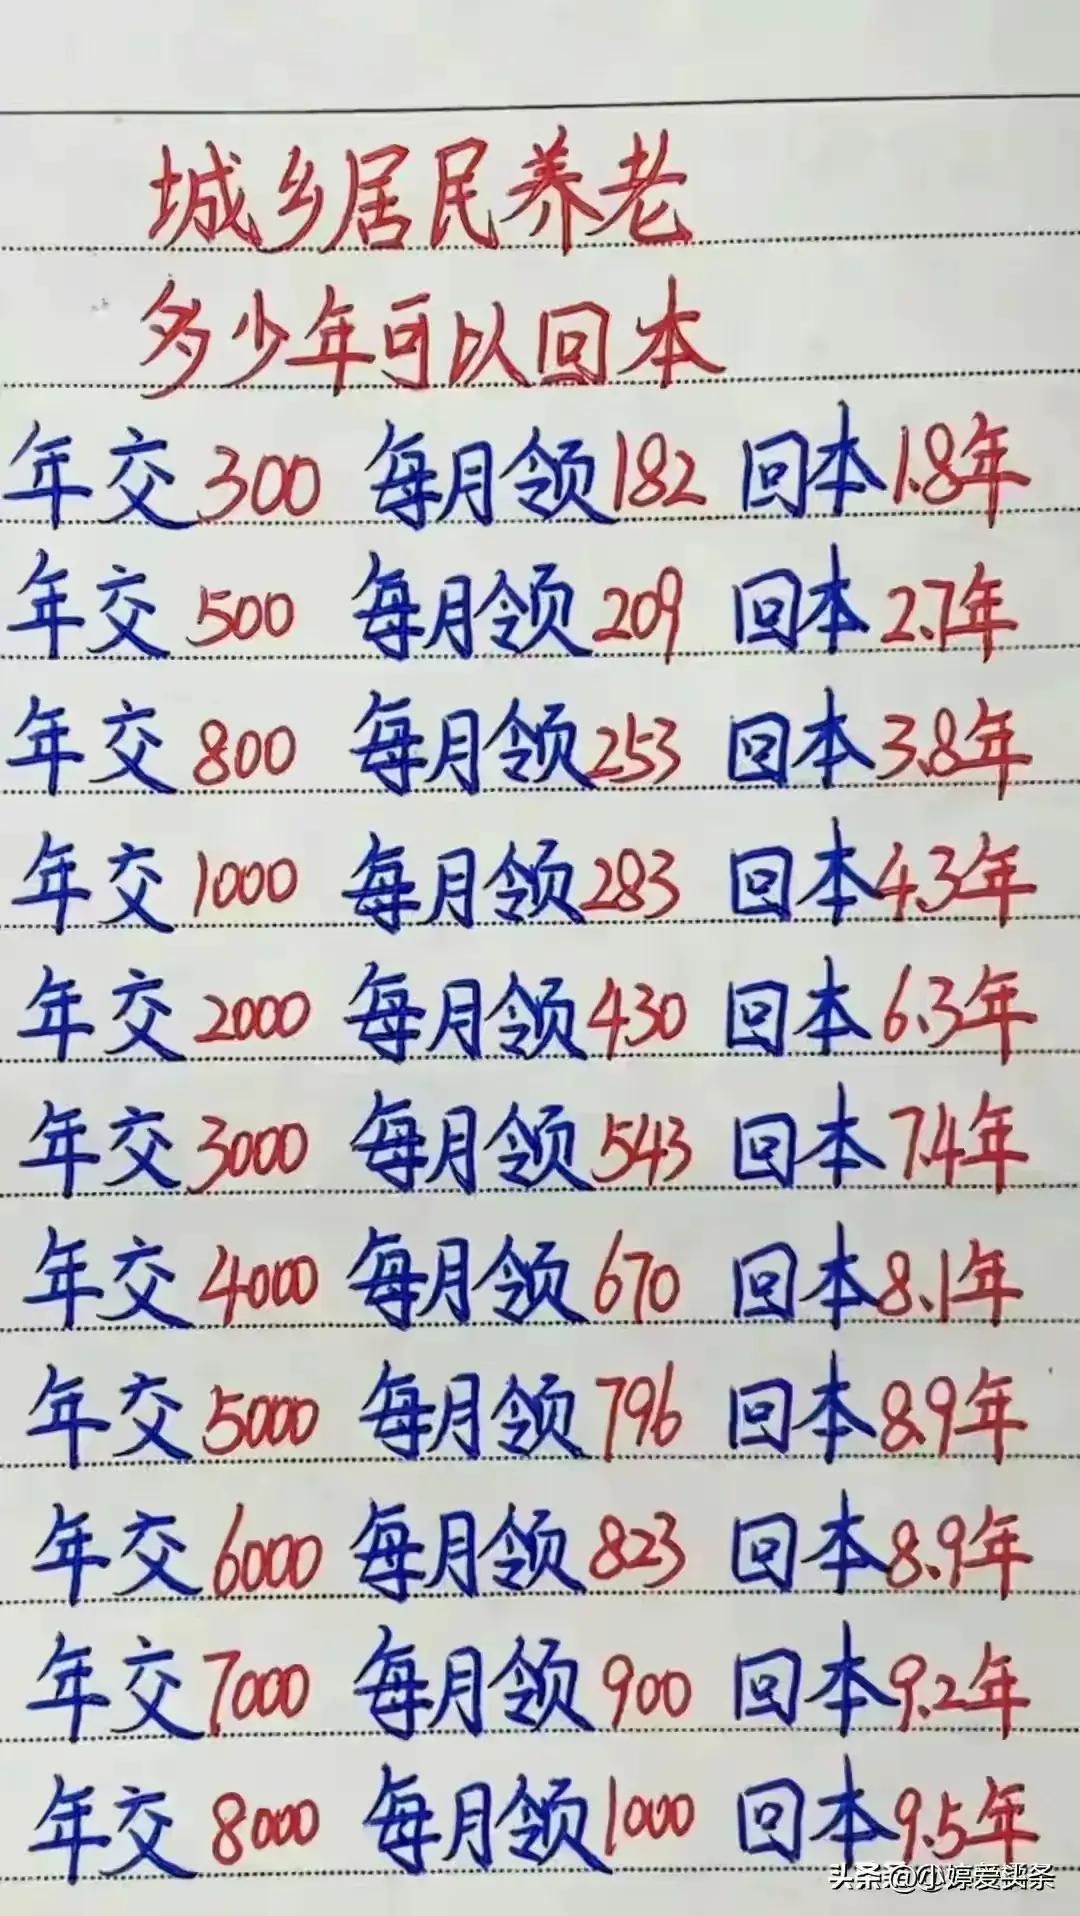 城乡居民养老
多少年可以回本
年交300 每月领182 回本1.8年
年交500 每月领209 回本2.7年
年交800 每月领253 回本3.8年
年交1000 每月领283 回本4.3年
年交2000 每月领430 回本6.3年
年交3000 每月领543 回本7.4年
年交4000 每月领670 回本8.1年
年交5000 每月领796 回本8.9年
年交6000 每月领823 回本8.9年
年交7000 每月领900 回本9.2年
年交8000 每月领1000 回本9.5年
头条@小婷爱头条